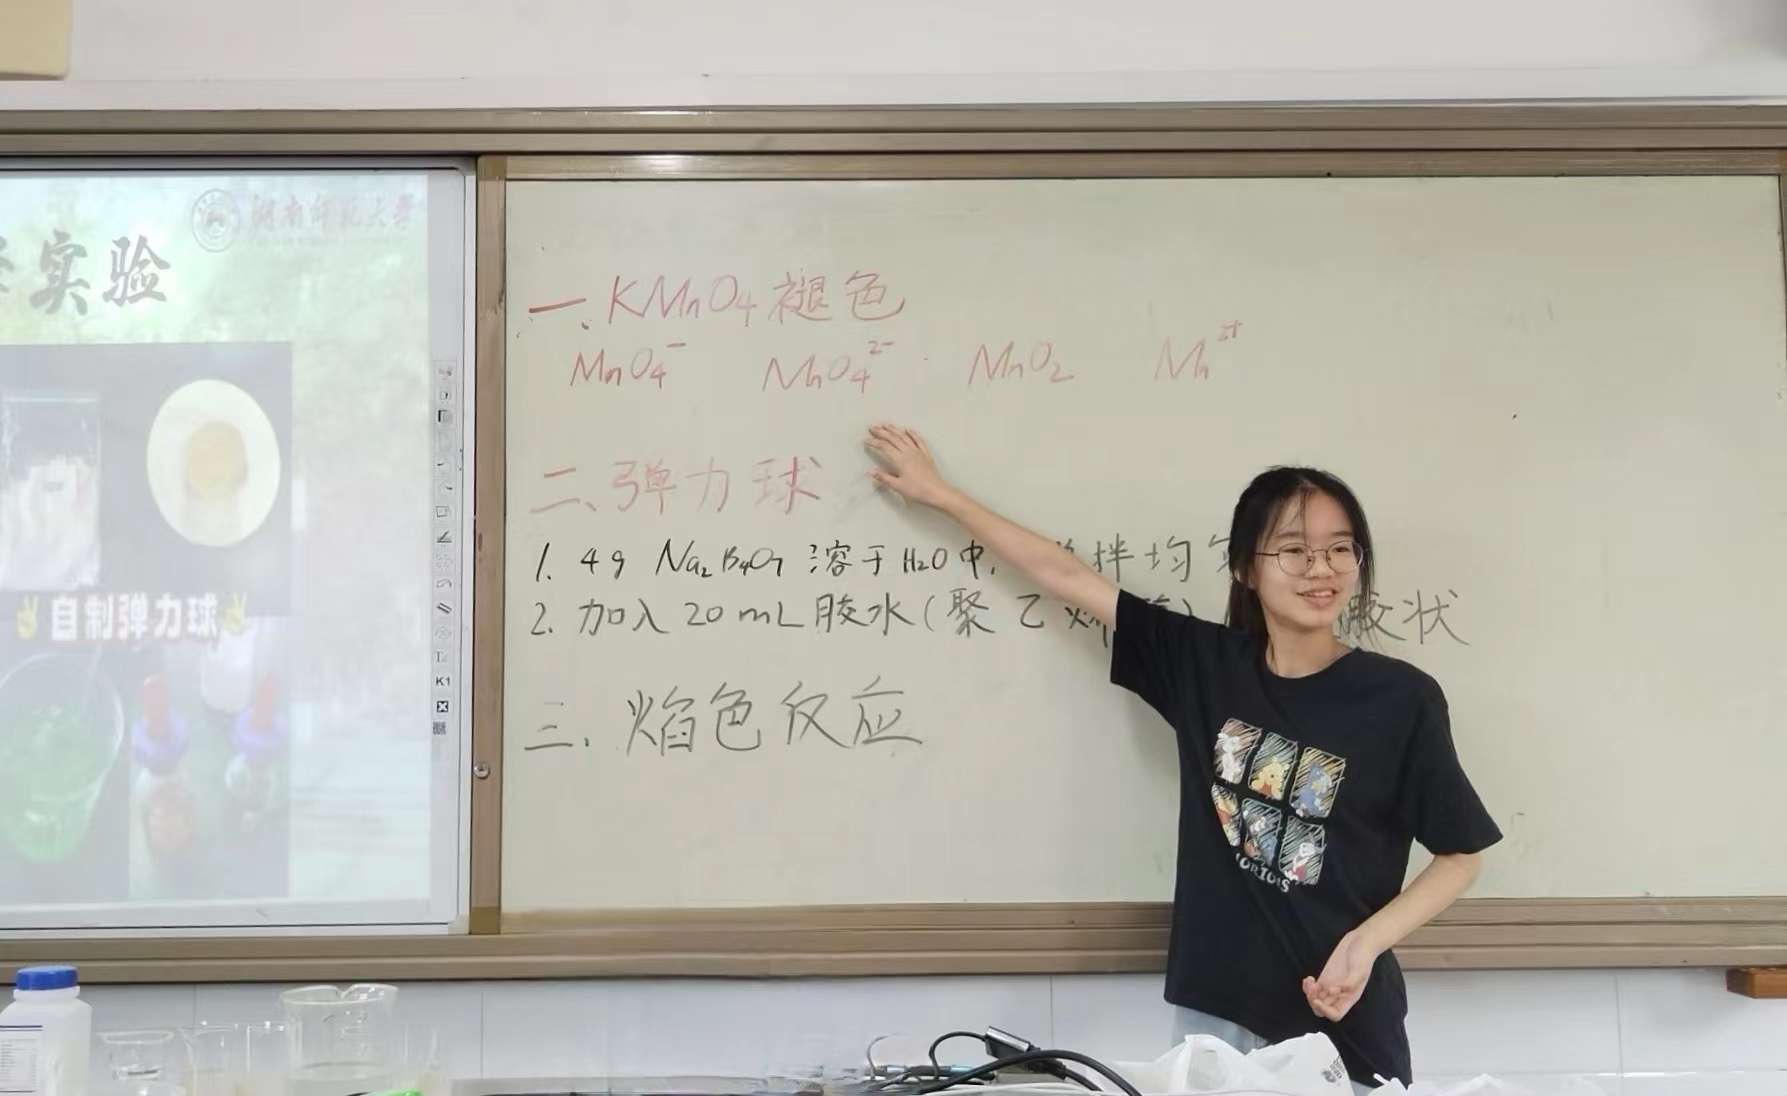 湖南师范大学
实验
自制弹力球
K1
一、KMnO4褪色
MnO4⁻ MnO4²⁻ MnO2 Mn²⁺
二、弹力球
1. 4g Na2B4O7 溶于H2O中, 拌均
2. 加入20mL胶水(聚乙烯 胶状
三、焰色反应